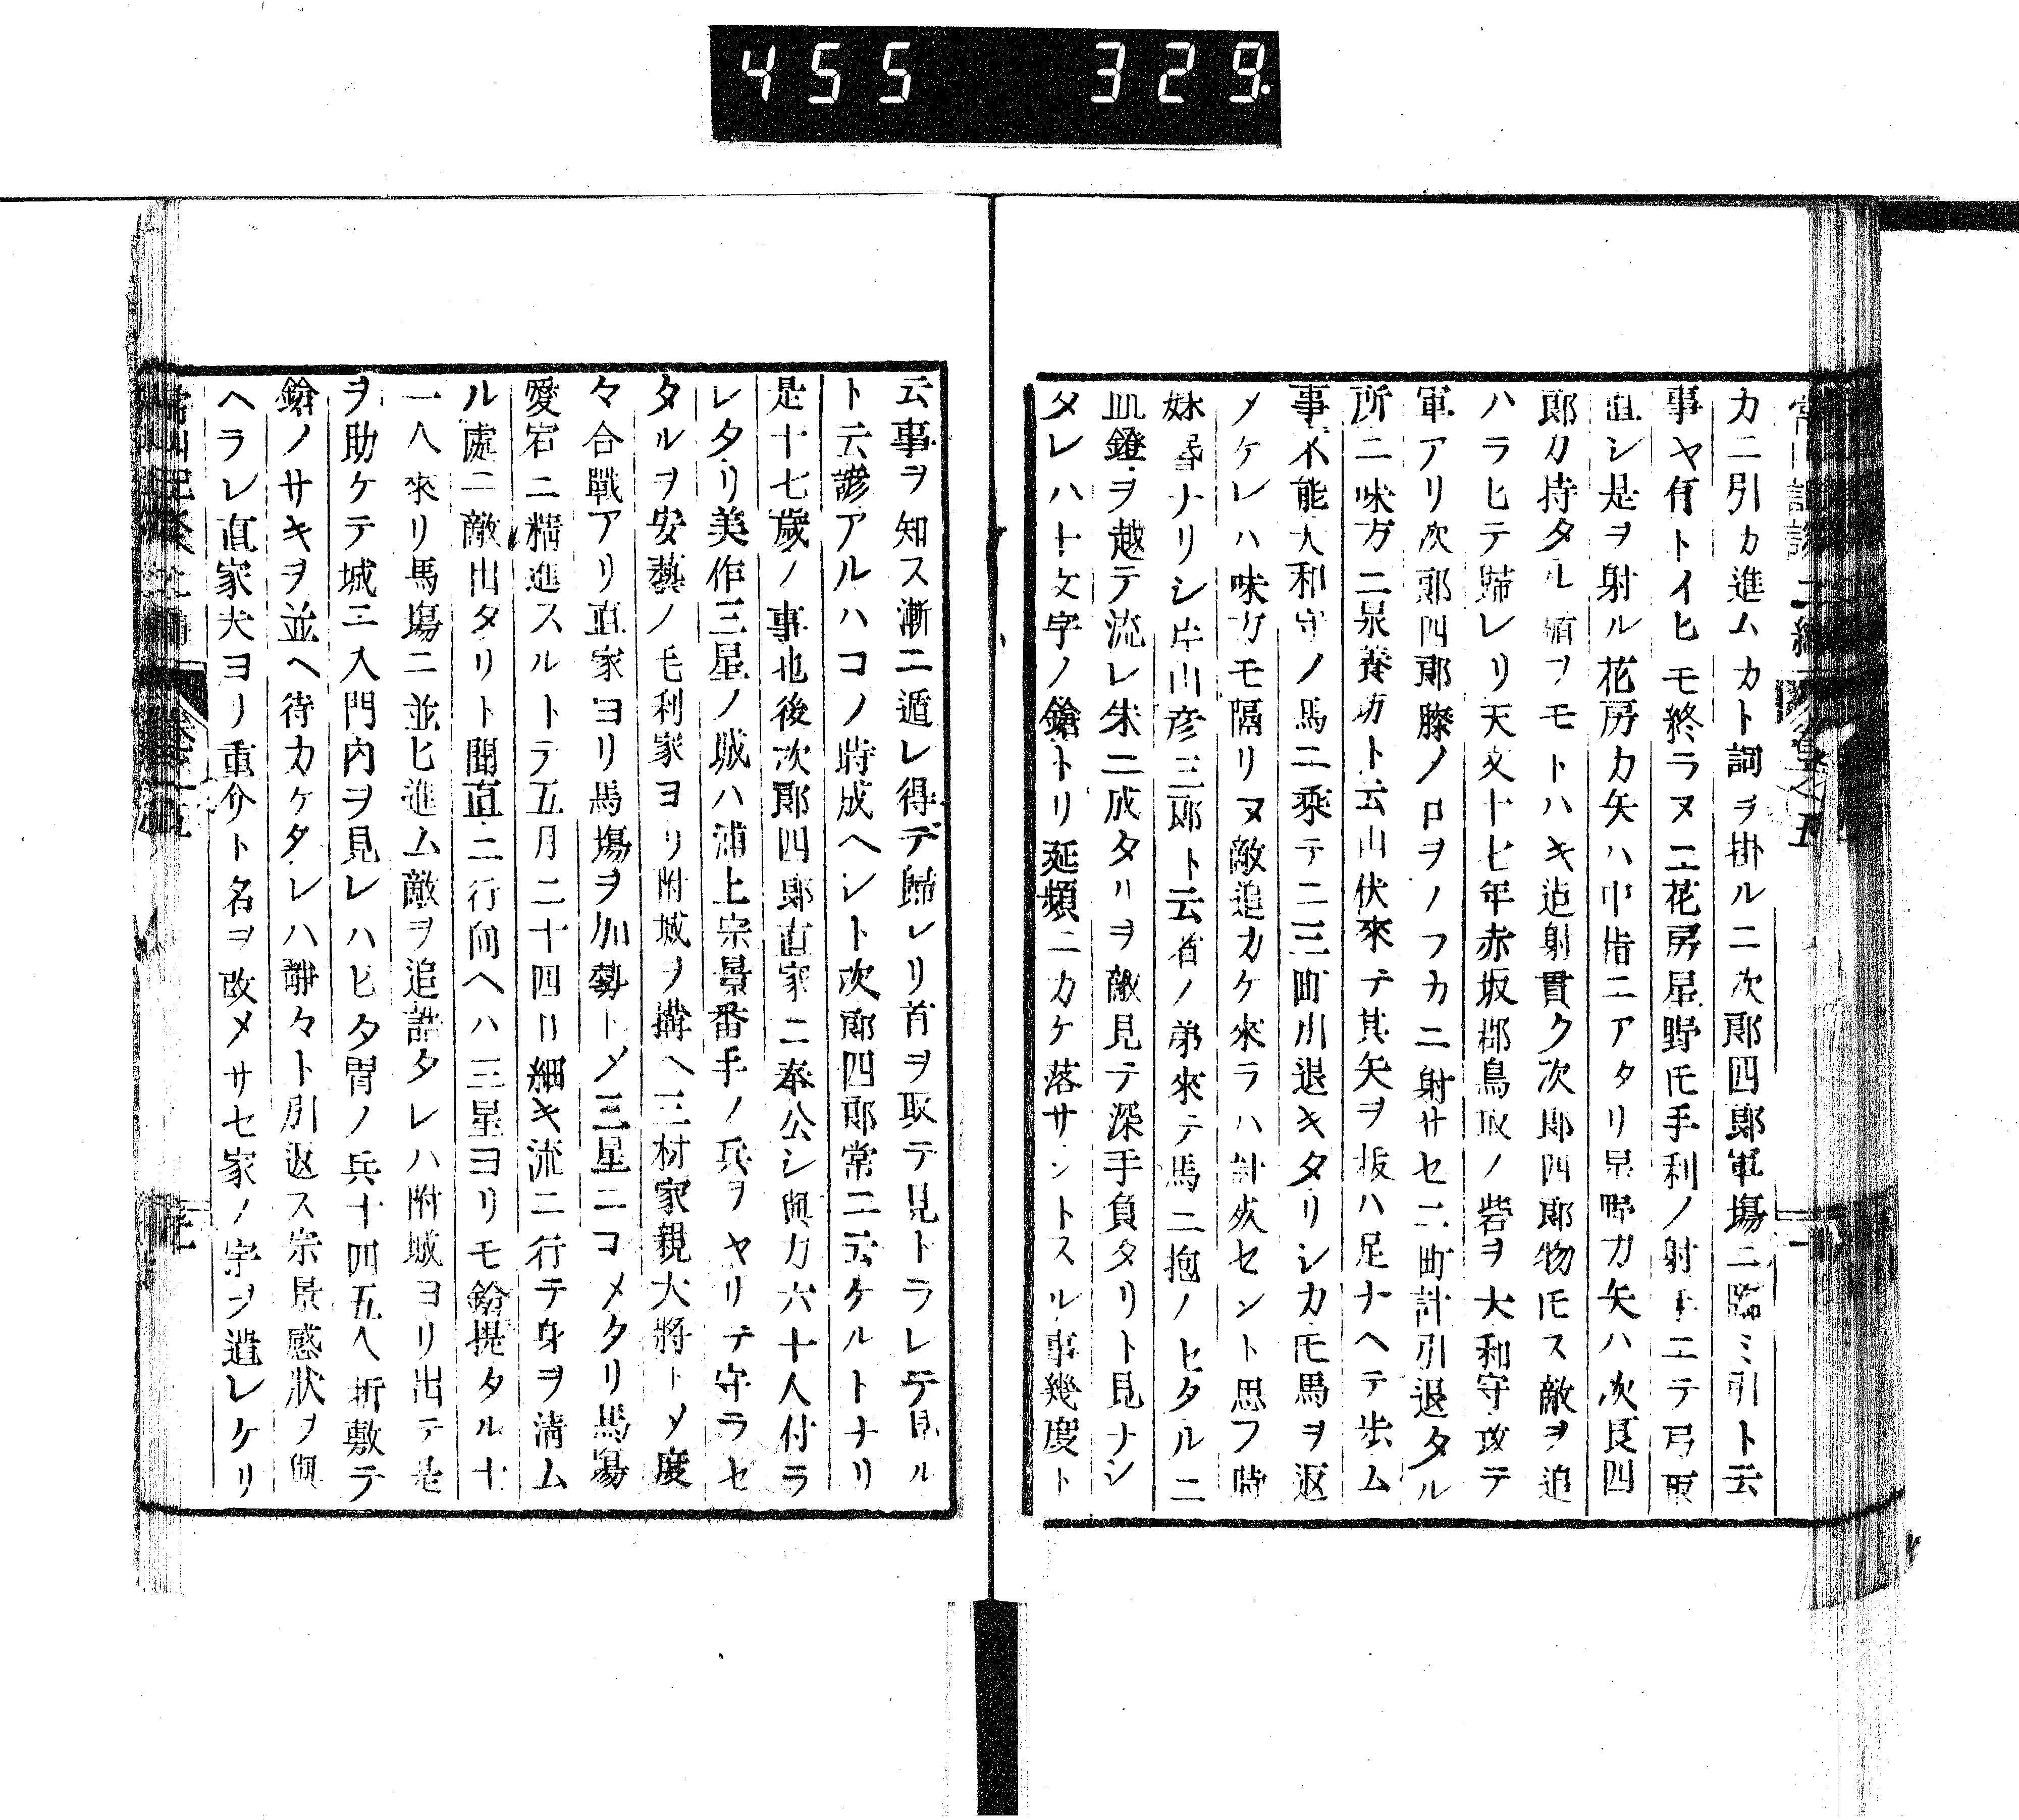 455 329
常山紀談二編 卷之五
カニ引カ進ムカト詞ヲ掛ルニ次郎四郎軍場ニ臨ミ引ト云
事ヤ有トイヒモ終ラヌニ花房星野氏手利ノ射手ニテ弓取
直シ是ヲ射ル花房カ矢ハ巾指ニアタリ星野カ矢ハ次郎四
郎カ持タル鎗ヲモトハキ迠射貫ク次郎四郎物氏ス敵ヲ追
ハラヒテ歸レリ天文十七年赤坂郡鳥取ノ砦ヲ大和守攻テ
軍アリ次郎四郎膝ノ口ヲノフカニ射サセ二町計引退タル
所ニ味方ニ泉養坊ト云山伏來テ其矢ヲ抜ハ足ナヘテ歩ム
事不能大和守ノ馬ニ乘テ二三町引退キタリシカ氏馬ヲ返
メケレハ味方モ隔リヌ敵追カケ來ラハ討死セント思フ時
妹聟ナリシ片山彦三郎ト云者ノ弟來テ馬ニ抱ノセタルニ
血鐙ヲ越テ流レ朱ニ成タルヲ敵見テ深手負タリト見ナシ
タレハ十文字ノ鎗トリ延頻ニカケ落サントスル事幾度ト
云事ヲ知ス漸ニ遁レ得デ歸レリ首ヲ取テ見トラレテ見ル
ト云諺アルハコノ時成ヘシト次郎四郎常ニ云ケルトナリ
是十七歲ノ事也後次郎四郎直家ニ奉公シ與力六十人付ラ
レタリ美作三星ノ城ハ浦上宗景番手ノ兵ヲヤリテ守ラセ
タルヲ安藝ノ毛利家ヨリ附城ヲ搆ヘ三村家親大將トメ度
々合戰アリ直家ヨリ馬場ヲ加勢トメ三星ニコメタリ馬場
愛宕ニ精進スルトテ五月二十四日細キ流ニ行テ身ヲ淸ム
ル處ニ敵出タリト聞直ニ行向ヘハ三星ヨリモ鎗提タル士
一人來リ馬場ニ並ヒ進ム敵ヲ追詰タレハ附城ヨリ出テ是
ヲ助ケテ城ニ入門内ヲ見レハヒタ冑ノ兵十四五人折敷テ
鎗ノサキヲ並ヘ待カケタレハ靜々ト引返ス宗景感狀ヲ與
ヘラレ直家夫ヨリ重介ト名ヲ改メサセ家ノ字ヲ遣レケリ
常山紀談二編 卷之五